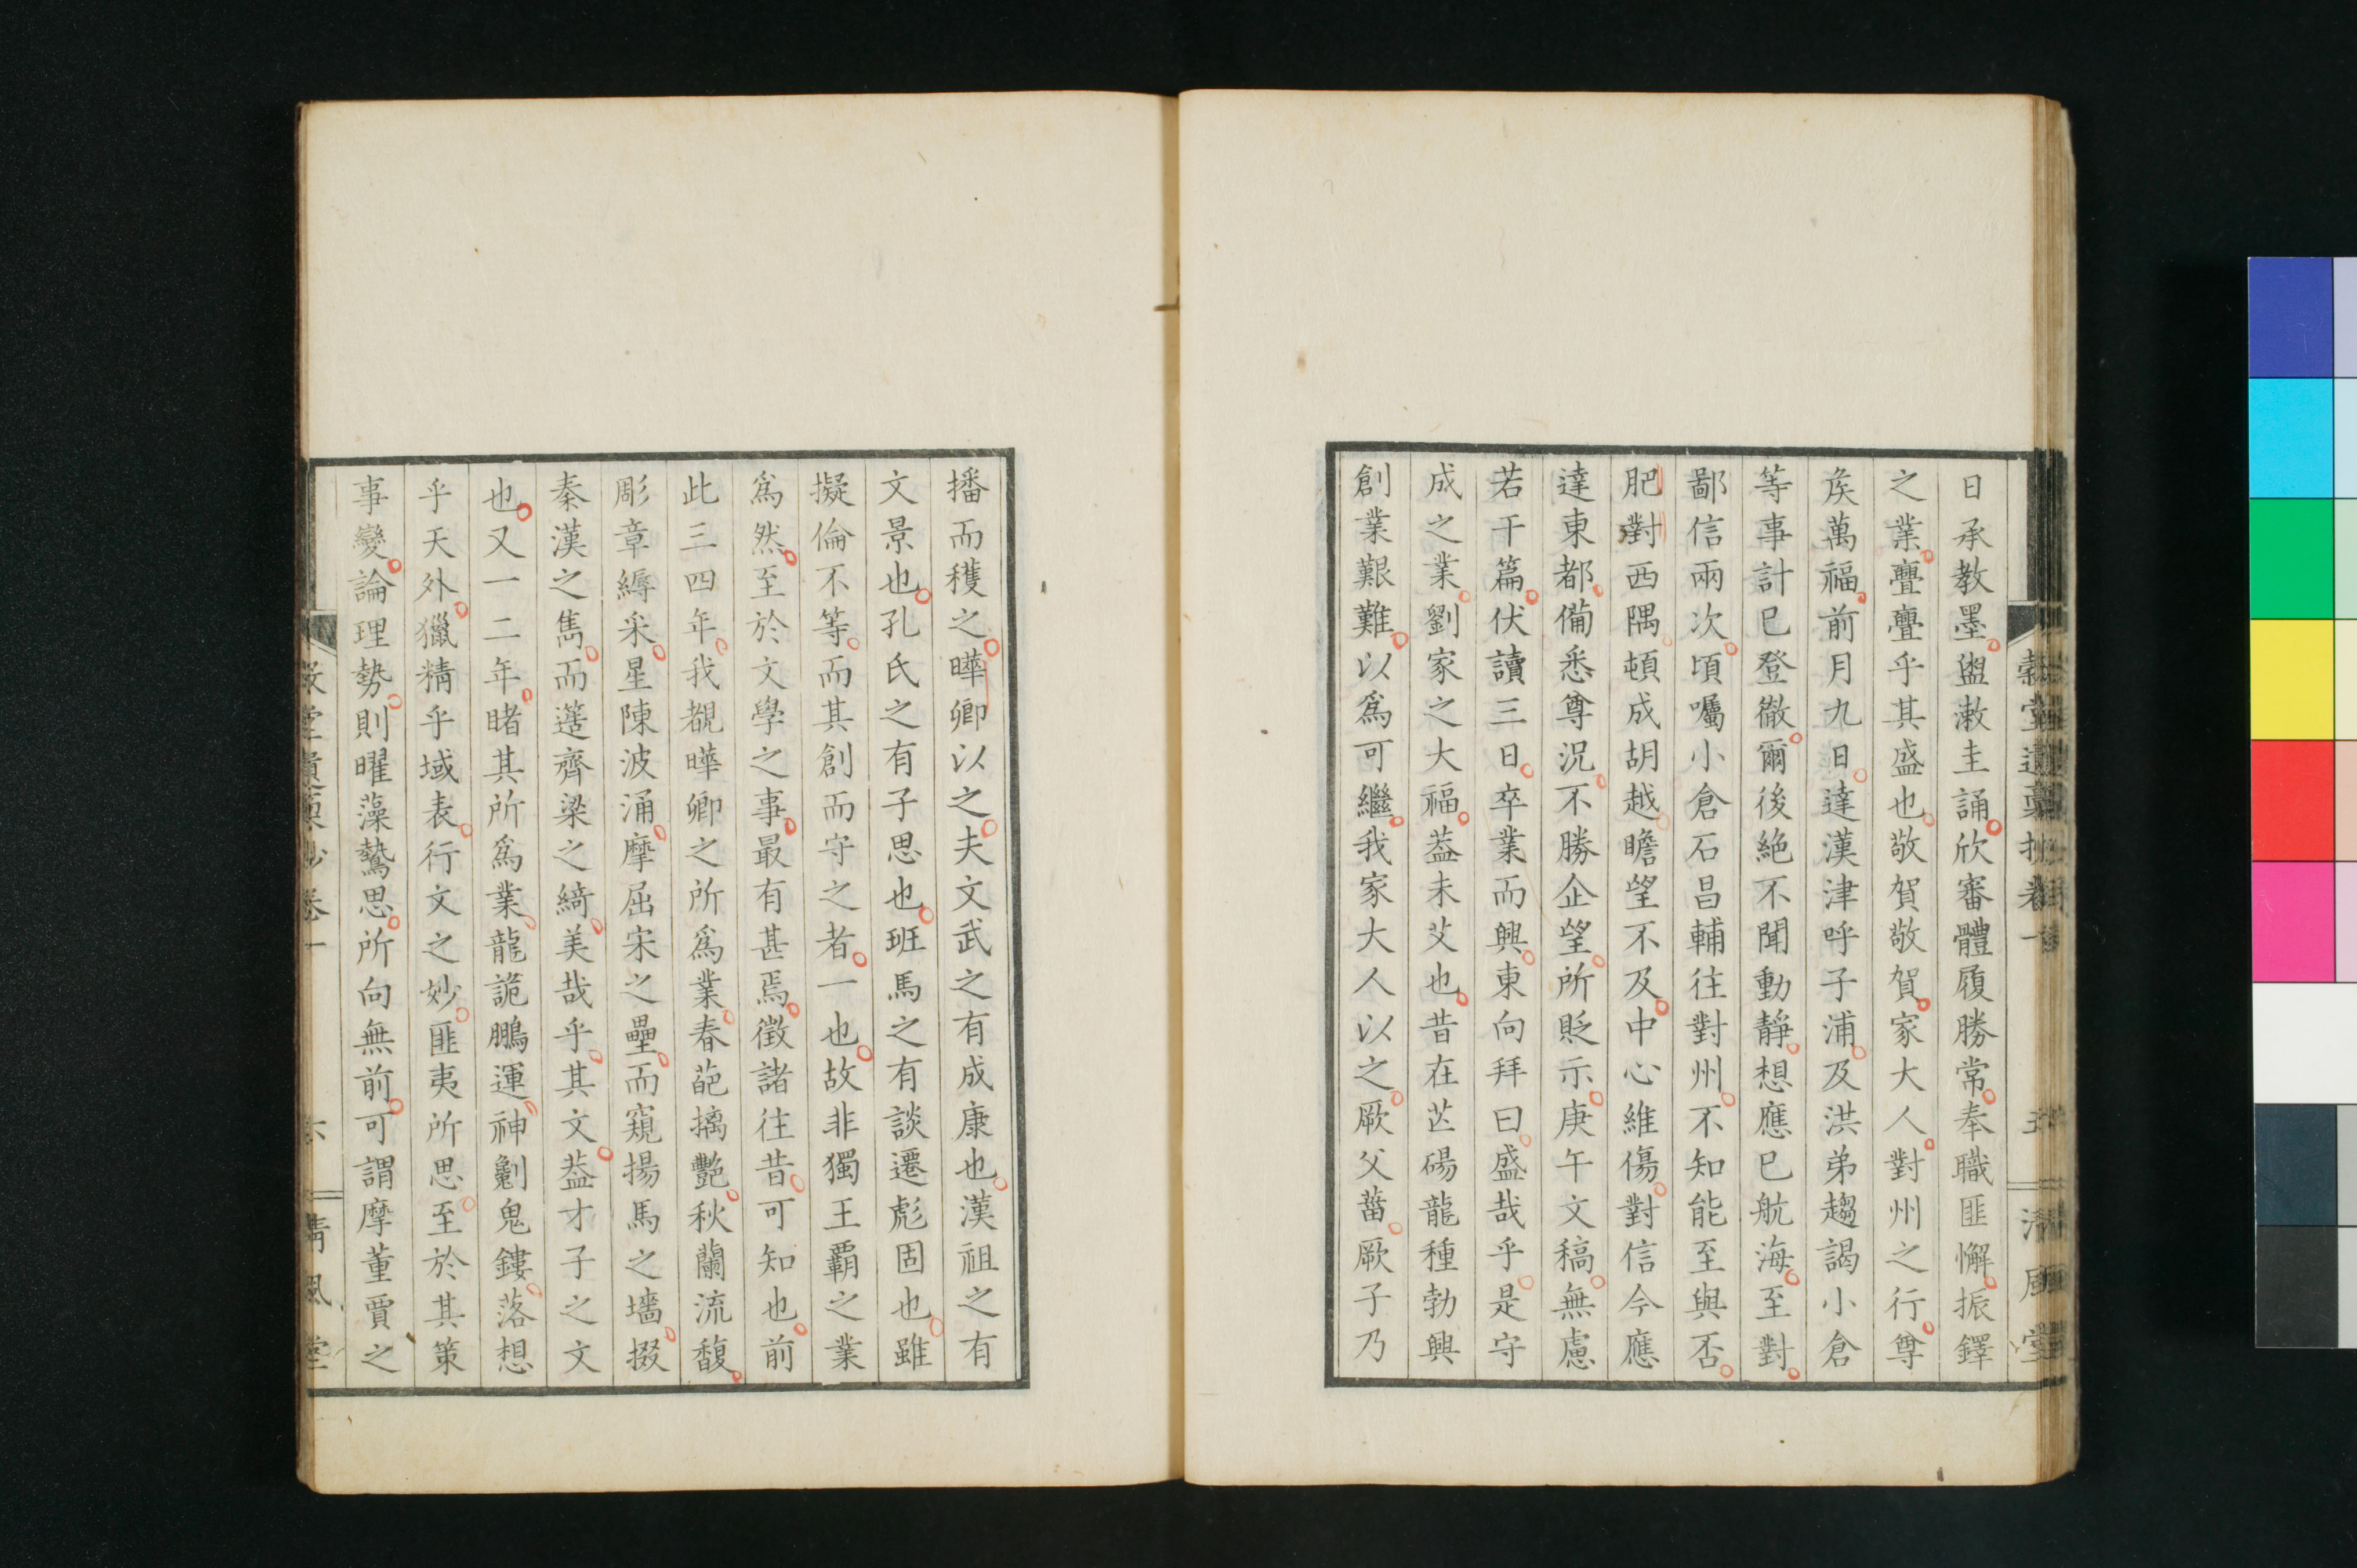 日承教墨盥漱圭誦欣審體履勝常奉職匪懈振鐸
之業亹亹乎其盛也敬賀敬賀家大人對州之行尊
矦萬福前月九日達漢津呼子浦及洪弟趨謁小倉
等事計已登徹爾後絶不聞動靜想應已航海至對
鄙信兩次頃囑小倉石昌輔往對州不知能至與否
肥對西隅頓成胡越瞻望不及中心維傷對信今應
達東都備悉尊況不勝企望所貶示庚午文稿無慮
若干篇伏讀三日卒業而興東向拜曰盛哉乎是守
成之業劉家之大福葢未艾也昔在芒碭龍種勃興
創業艱難以爲可繼我家大人以之厥父菑厥子乃
播而穫之曄卿以之夫文武之有成康也漢祖之有
文景也孔氏之有子思也班馬之有談遷彪固也雖
擬倫不等而其創而守之者一也故非獨王覇之業
爲然至於文學之事最有甚焉徵諸往昔可知也前
此三四年我覩曄卿之所爲業春葩摛艷秋蘭流馥
彫章縟采星陳波涌摩屈宋之壘而窺揚馬之墻掇
秦漢之雋而選齊梁之綺美哉乎其文葢才子之文
也又一二年睹其所爲業龍詭鵬運神剜鬼鏤落想
乎天外獵精乎域表行文之妙匪夷所思至於其策
事變論理勢則曜藻驇思所向無前可謂摩董賈之
清風堂